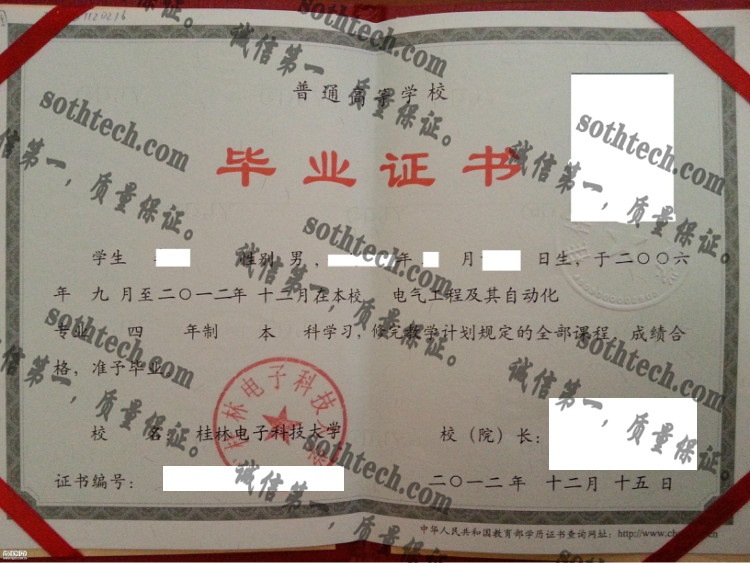 1120216
普通高等学校
毕业证书
学生 性别 男, 年 月 日生,于二〇〇六
年 九 月至二〇一二年 十二月在本校 电气工程及其自动化
专业 四 年制 本 科学习,修完教学计划规定的全部课程,成绩合
格,准予毕业。
校 名: 桂林电子科技大学
校(院)长:
证书编号:
二〇一二年 十二月 十五日
中华人民共和国教育部学历证书查询网址: http://www.ch
桂林电子科技大
sothtech.com
诚信第一,质量保证。
sothtech.com
诚信第一,质量保证。
sothtech.com
诚信第一,质量保证。
sothtech.com
诚信第一,质量保证。
sothtech.com
诚信第一,质量保证。
sothtech.com
诚信第一,质量保证。
sothtech.com